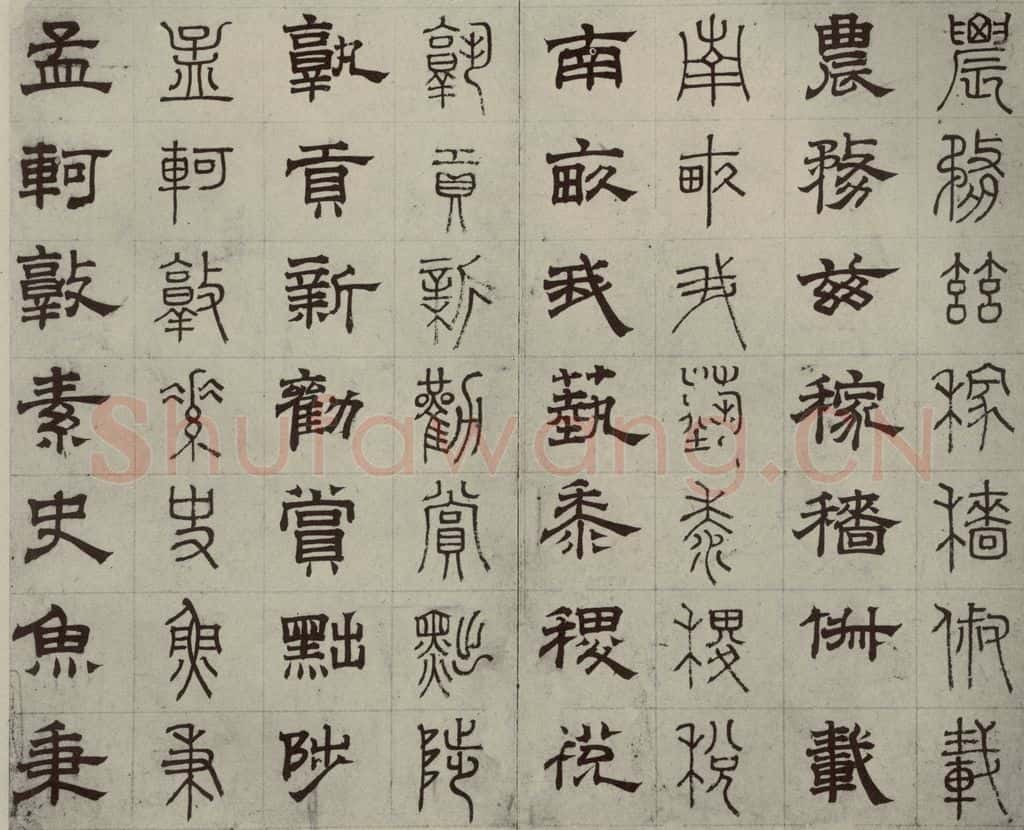 農務茲稼穡俶載
農務茲稼穡俶載
南畝我藝黍稷稅
南畝我藝黍稷稅
孰貢新勸賞黜陟
孰貢新勸賞黜陟
孟軻敦素史魚秉
孟軻敦素史魚秉
Shufawang.CN